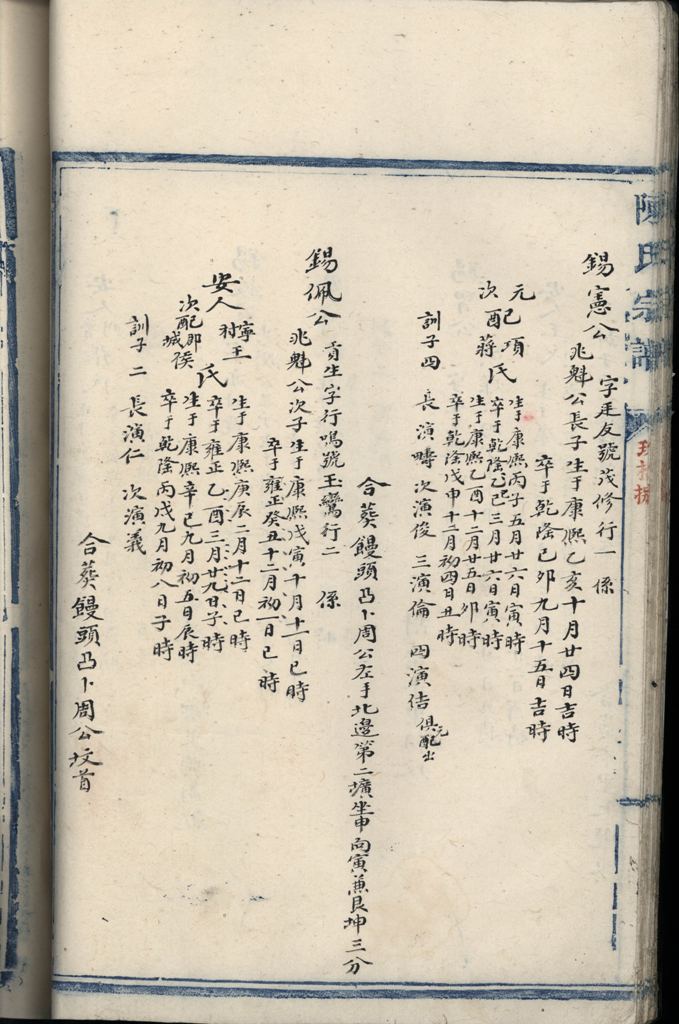 陳氏宗譜
錫憲公 字廷友號茂修行一 係
兆魁公長子生于康熙乙亥十月廿四日吉時
卒于乾隆己卯九月十五日吉時
元配項
次配蔣氏
生于康熙丙子五月廿六日寅時
卒于乾隆乙巳三月廿六日寅時
生于康熙乙酉十二月廿五日卯時
卒于乾隆戊申十二月初四日丑時
訓子四 長演疇 次演俊 三演倫 四演佶 俱元配出
合葬饅頭凸卜周公左手北邊第二壙坐申向寅兼艮坤三分
錫佩公 貢生字行鳴號玉鸞行二 係
兆魁公次子生于康熙戊寅十月十一日巳時
卒于雍正癸丑十二月初一日巳時
安人 寧王
次配郎城侯 氏
生于康熙庚辰二月十二日巳時
卒于雍正乙酉三月廿九日子時
生于康熙辛巳九月初五日辰時
卒于乾隆丙戌九月初八日子時
訓子二 長演仁 次演義
合葬饅頭凸卜周公坟首